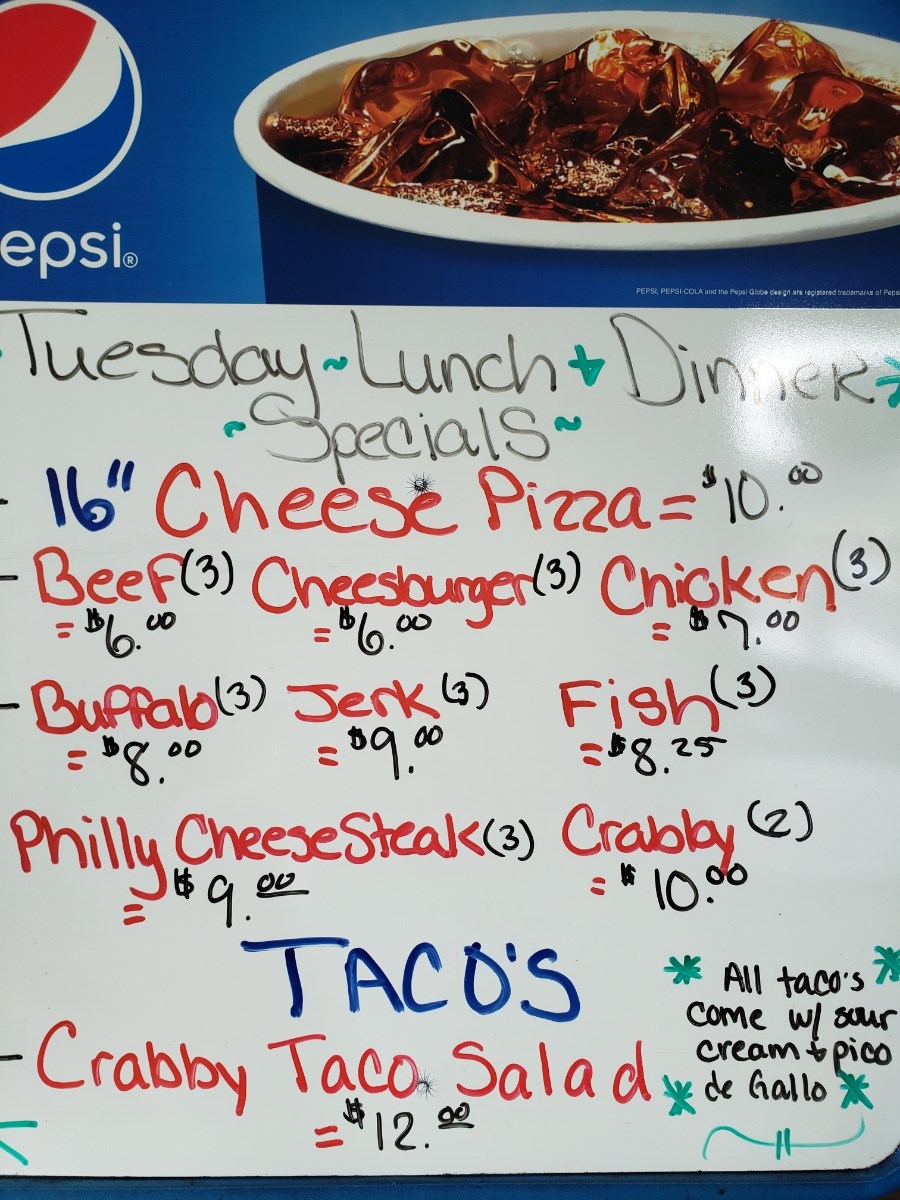 epsi®
PEPSI, PEPSI-COLA and the Pepsi Globe design are registered trademarks of Peps
Tuesday ~ Lunch + Dinner
~ Specials ~
- 16" Cheese Pizza = $10.00
- Beef (3) Cheesburger (3) Chicken (3)
= $6.00 = $6.00 = $7.00
- Buffalo (3) Jerk (3) Fish (3)
= $8.00 = $9.00 = $8.25
Philly CheeseSteak (3) Crabby (2)
= $9.00 = $10.00
TACO'S
* All taco's *
come w/ sour
cream + pico
* de Gallo *
- Crabby Taco Salad
= $12.00